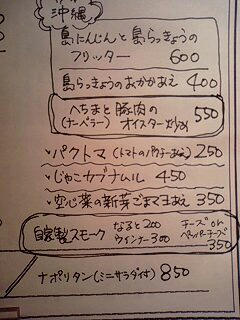 沖縄
島にんじんと島らっきょうの
フリッター 600
島らっきょうのおかかあえ 400
へちまと豚肉の
(ナーベラー) オイスター炒め 550
・パクトマ (トマトのパクチーあえ) 250
・じゃこカブナムル 450
・空心菜の新芽ごまマヨあえ 350
自家製スモーク なると200 チーズor
ウインナー300 ペッパーチーズ
350
ナポリタン(ミニサラダ付) 850